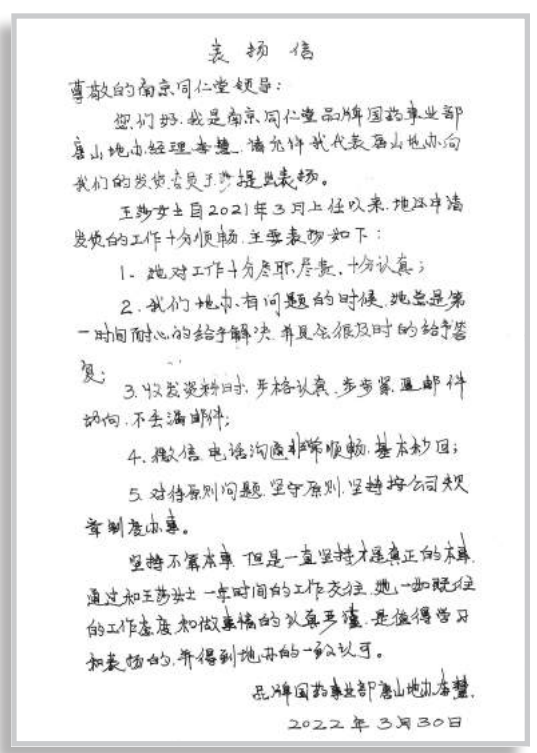 表扬信
尊敬的南京同仁堂领导：
您们好，我是南京同仁堂品牌国药事业部
唐山地办经理李慧，请允许我代表唐山地办向
我们的发货专员王莎提出表扬。
王莎女士自2021年3月上任以来，地区申请
发货的工作十分顺畅，主要表扬如下：
1、她对工作十分尽职尽责、十分认真；
2、我们地办有问题的时候，她总是第
一时间耐心的给予解决，并且会很及时的给予答
复；
3、收发资料时，严格认真，步步紧逼邮件
动向，不丢漏邮件；
4、微信，电话沟通非常顺畅，基本秒回；
5、对待原则问题，坚守原则，坚持按公司规
章制度办事。
坚持不算本事，但是一直坚持才是真正的本事，
通过和王莎女士一年时间的工作交往，她一如既往
的工作态度和做事情的认真严谨，是值得学习
和表扬的，并得到地办的一致认可。
品牌国药事业部唐山地办李慧，
2022年3月30日